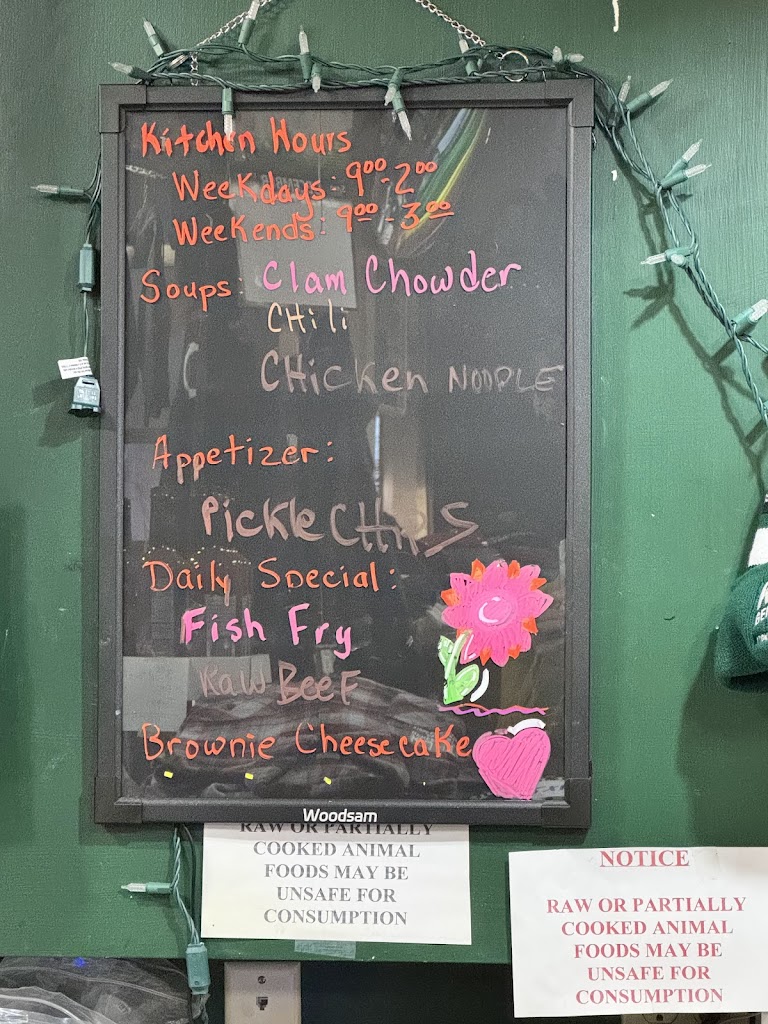 Kitchen Hours
Weekdays: 9⁰⁰-2⁰⁰
Weekends: 9⁰⁰-3⁰⁰
Soups: Clam Chowder
CHili
CHicken NOODLE
Appetizer:
Pickle CHIPS
Daily Special:
Fish Fry
Raw BeeF
Brownie Cheesecake
Woodsam
RAW OR PARTIALLY
COOKED ANIMAL
FOODS MAY BE
UNSAFE FOR
CONSUMPTION
NOTICE
RAW OR PARTIALLY
COOKED ANIMAL
FOODS MAY BE
UNSAFE FOR
CONSUMPTION